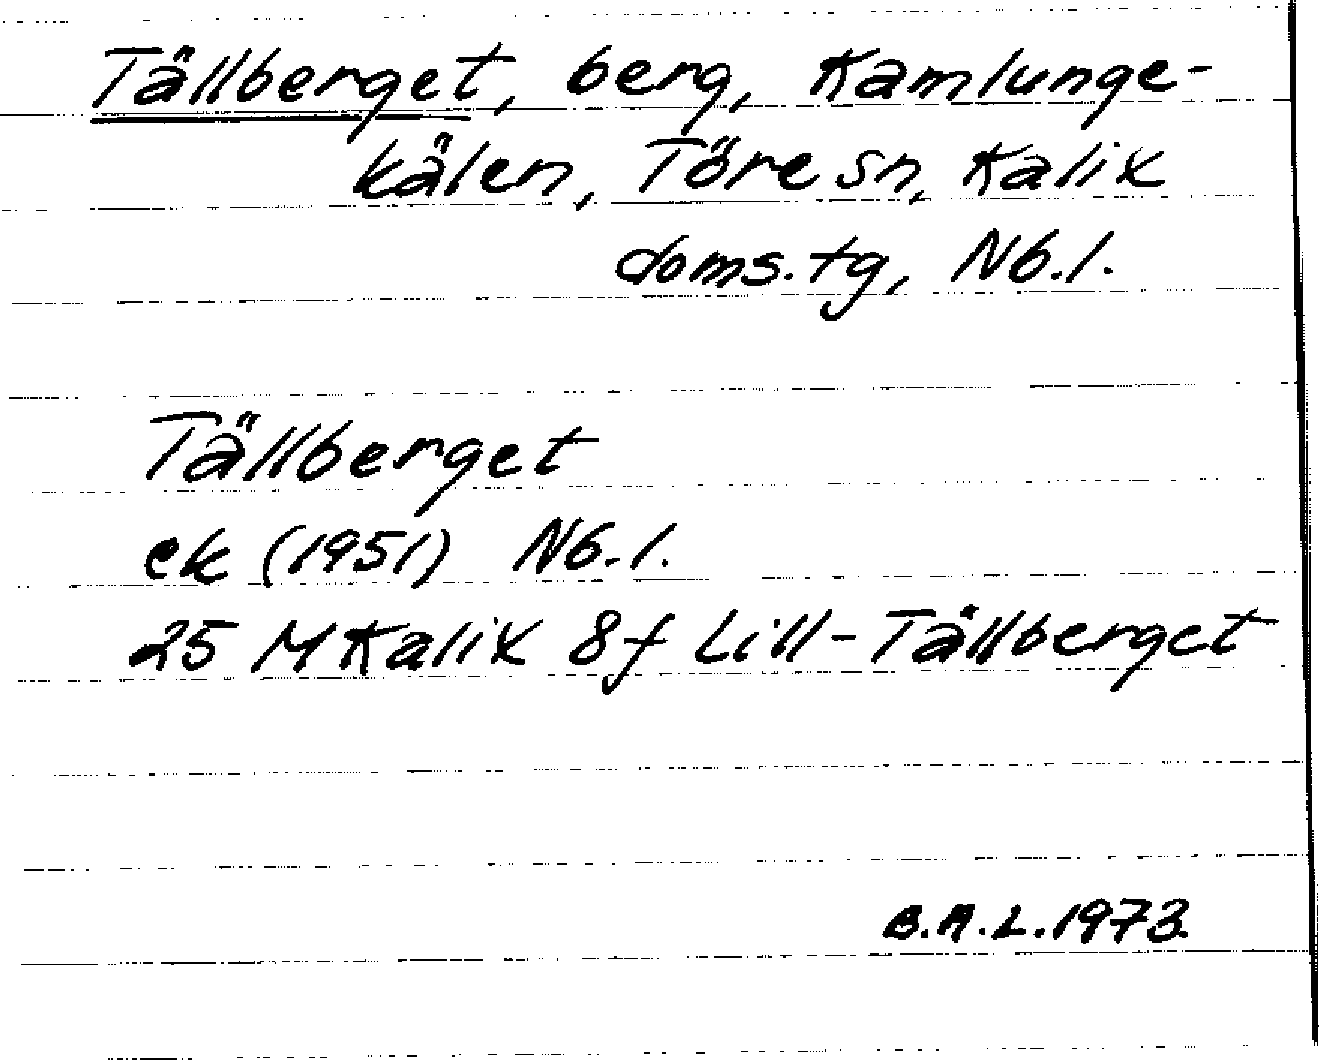 Tällberget, berg, Kamlunge-
kälen, Töre sn, Kalix
doms.tg, Nb.l.
Tällberget
ek (1951) Nb.l.
25 M Kalix 8f Lill-Tällberget
B.A.L.1973.